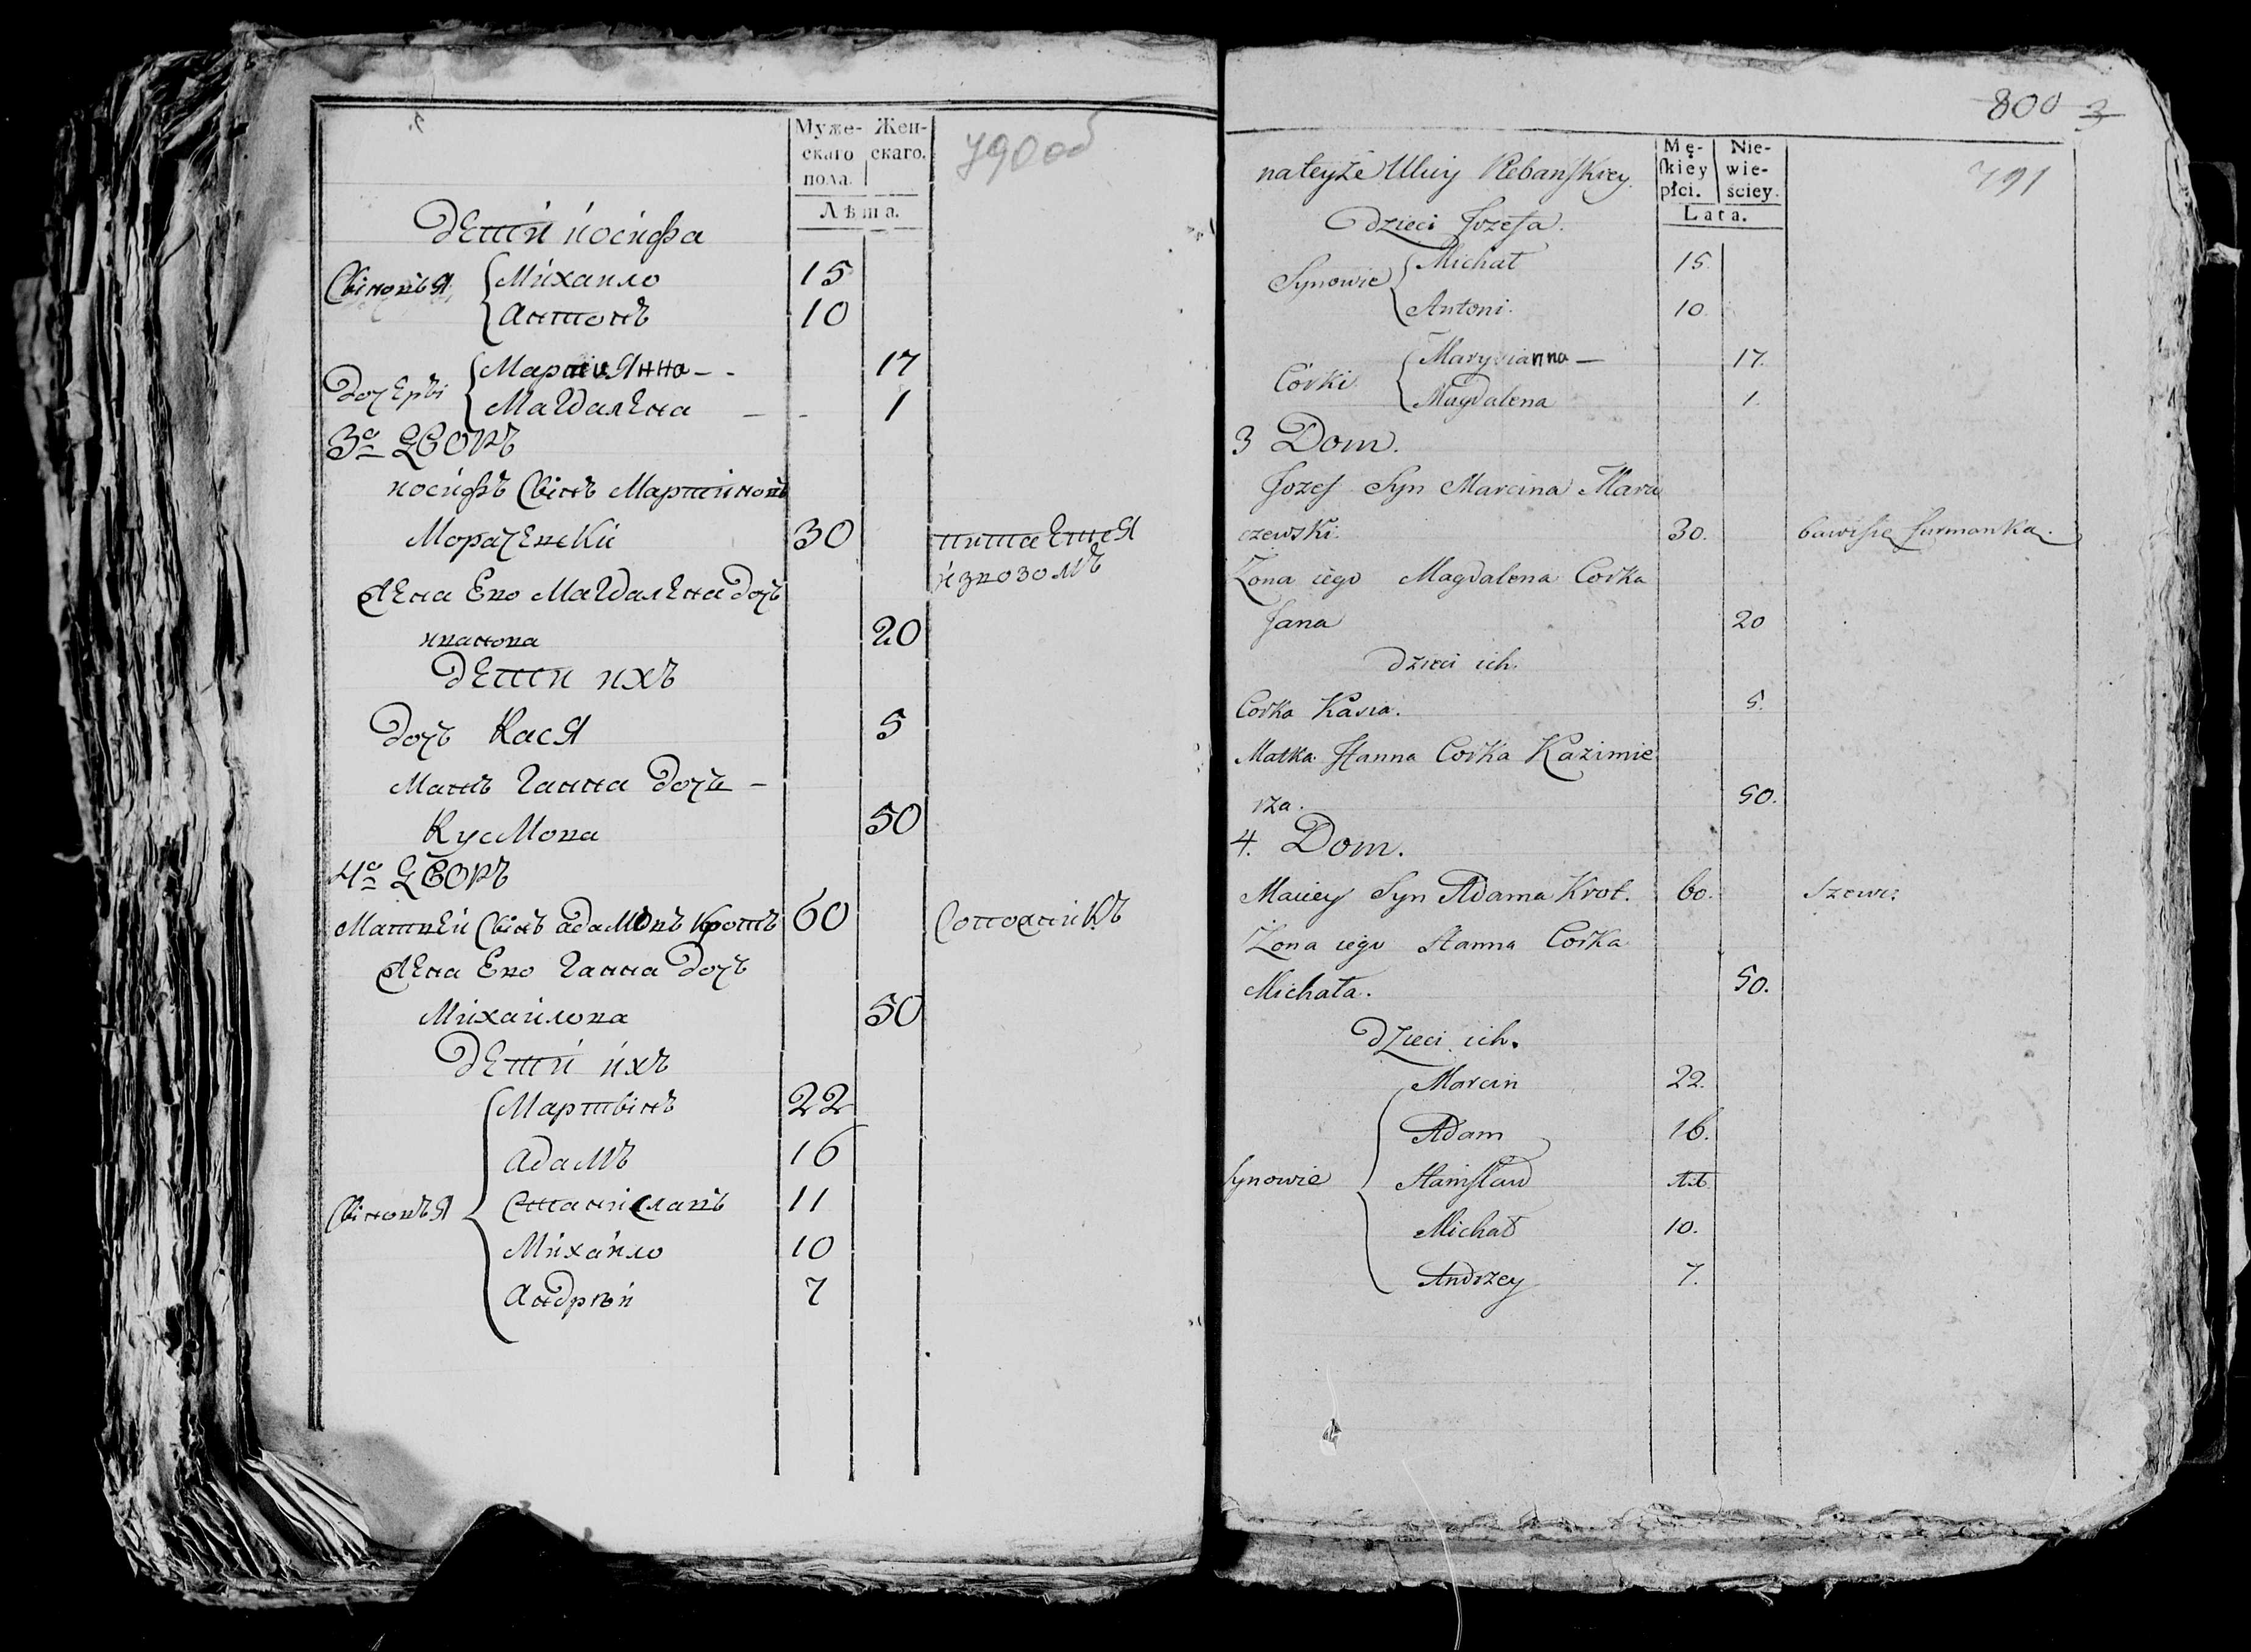 Муже-
скаго
пола.
Жен-
скаго.
Лѣта.
790 об
Дети иосифа
Сыновья
Михаило 15
Антонъ 10
Дочеры
Марыянна - - 17
Магдалена - - 1
3е Дворъ
иосифъ Сынъ Мартиновъ
Морачевски 30 питаетця
извозомъ
Жена Ево Магдалена дочь
иванова 20
Дети ихъ
Дочь Кася 5
Мать Ганна Дочь -
Кусмова 50
4е Дворъ
Матвей Сынъ адамовъ Кротъ 60 Сопожникъ
Жена Ево Ганна Дочь
Михаилова 50
Дети ихъ
Сыновья
Мартынъ 22
Адамъ 16
Станиславъ 11
Михаило 10
Андрѣй 7
800 3
791
na teyże Ulicy Plebanskiey.
Mę-
skiey
płci.
Nie-
wie-
ściey.
Lata.
Dzieci Jozefa.
Synowie
Michał 15.
Antoni. 10.
Córki.
Maryianna — 17.
Magdalena 1.
3 Dom.
Jozef Syn Marcina Mara
czewski. 30. bawisie furmanka.
Zona iego Magdalena Corka
Jana 20
dzieci ich.
Corka Kasia. 5.
Matka Hanna Corka Kazimie
rza. 50.
4. Dom.
Maciey Syn Adama Krot. 60. Szewc
Zona iego Hanna Corka
Michała. 50.
Dzieci ich.
Synowie
Marcin 22.
Adam 16.
Stanisław
Michał 10.
Andrzey 7.